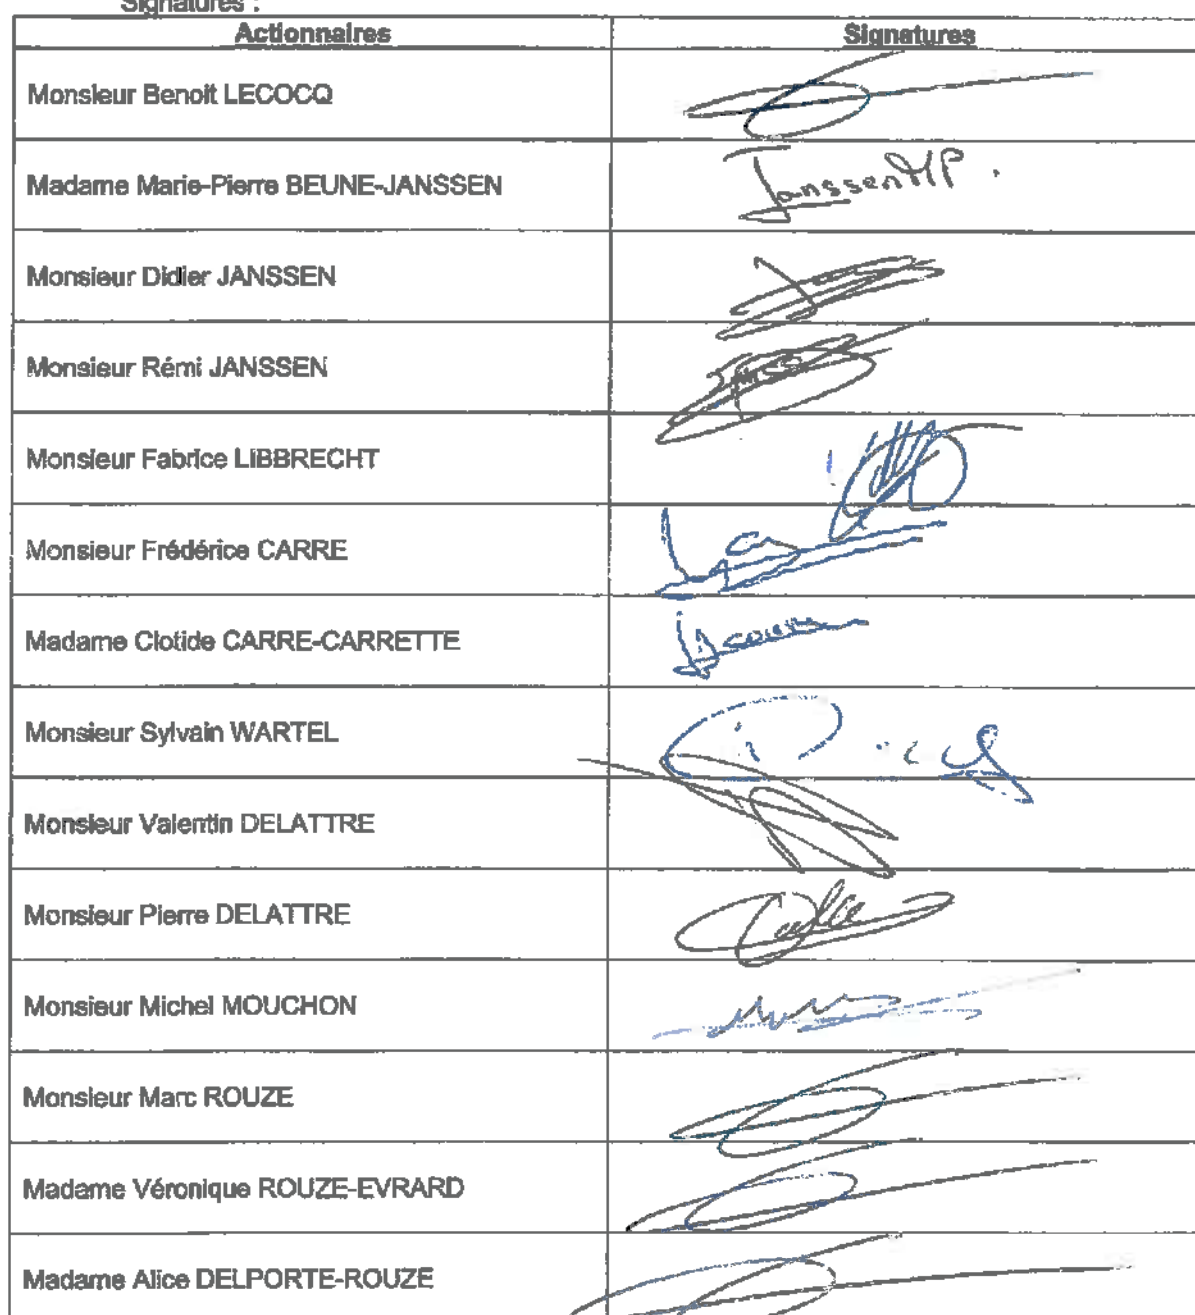 Signatures :
Actionnaires Signatures
Monsieur Benoit LECOCQ
Madame Marie-Pierre BEUNE-JANSSEN JanssenMP.
Monsieur Didier JANSSEN
Monsieur Rémi JANSSEN
Monsieur Fabrice LIBBRECHT
Monsieur Frédérice CARRE
Madame Clotide CARRE-CARRETTE
Monsieur Sylvain WARTEL
Monsieur Valentin DELATTRE
Monsieur Pierre DELATTRE
Monsieur Michel MOUCHON
Monsieur Marc ROUZE
Madame Véronique ROUZE-EVRARD
Madame Alice DELPORTE-ROUZE